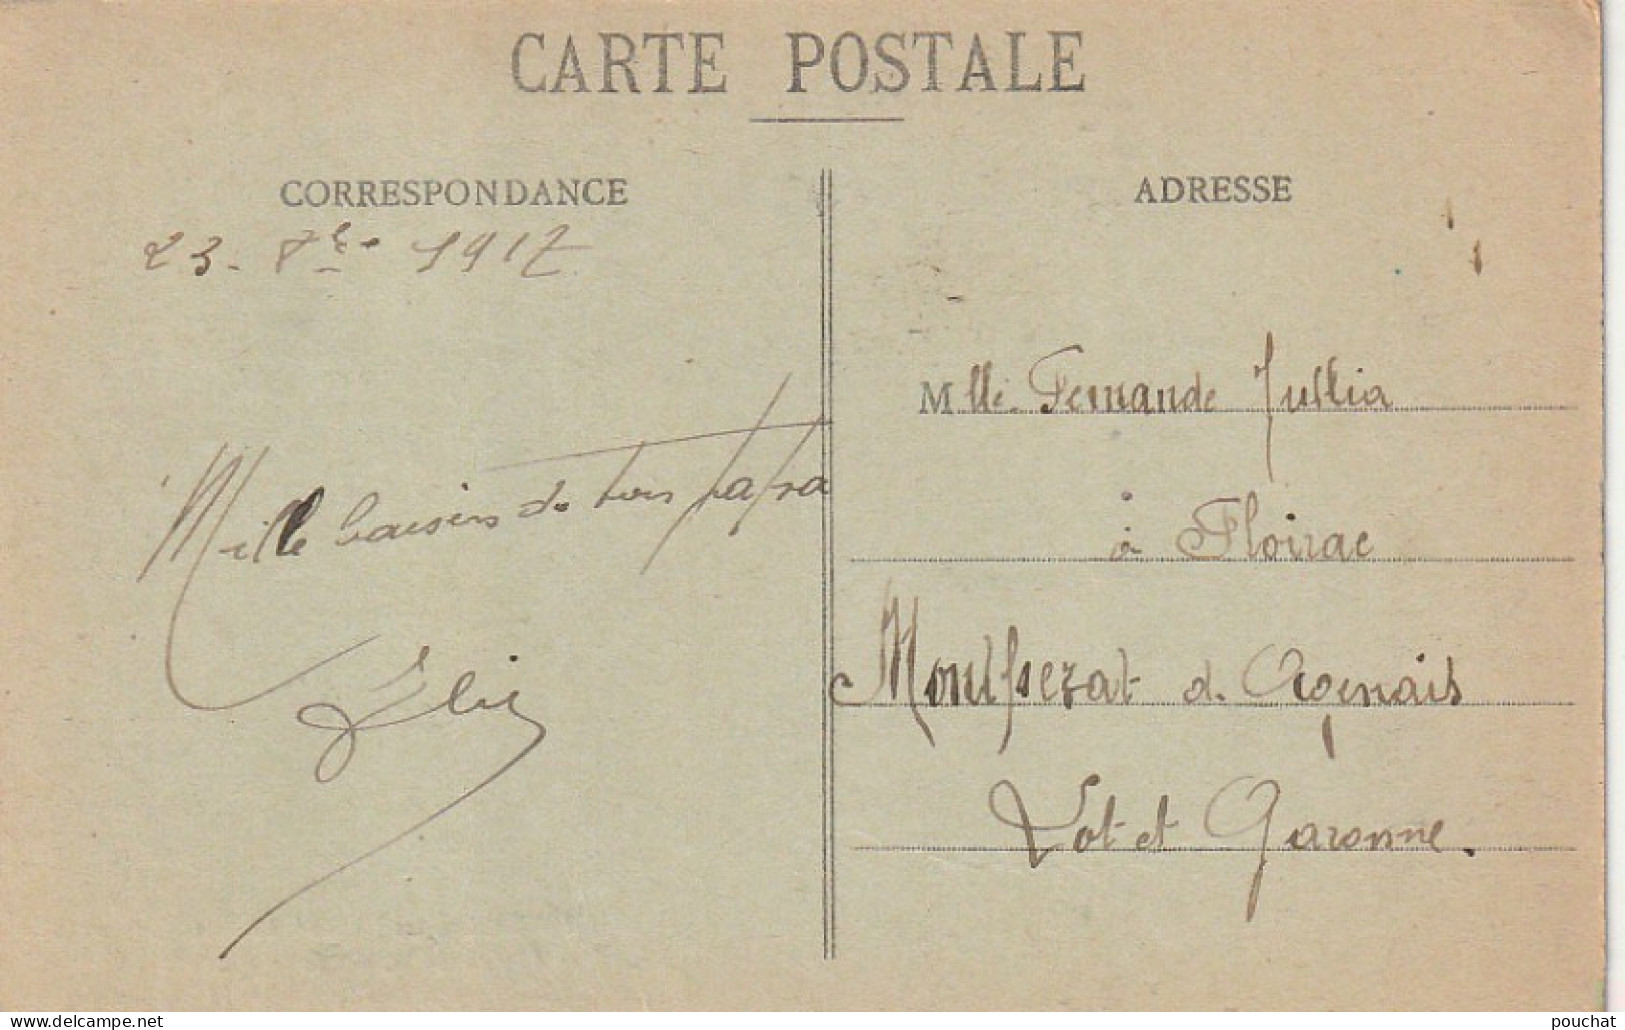 CARTE POSTALE
CORRESPONDANCE
23. 7bre 1917
Mille baisers de ton papa
Elie
ADRESSE
Mlle. Fernande Jullia
à Floirac
Montpezat d. Agenais
Lot et Garonne.
www.delcampe.net
pouchat